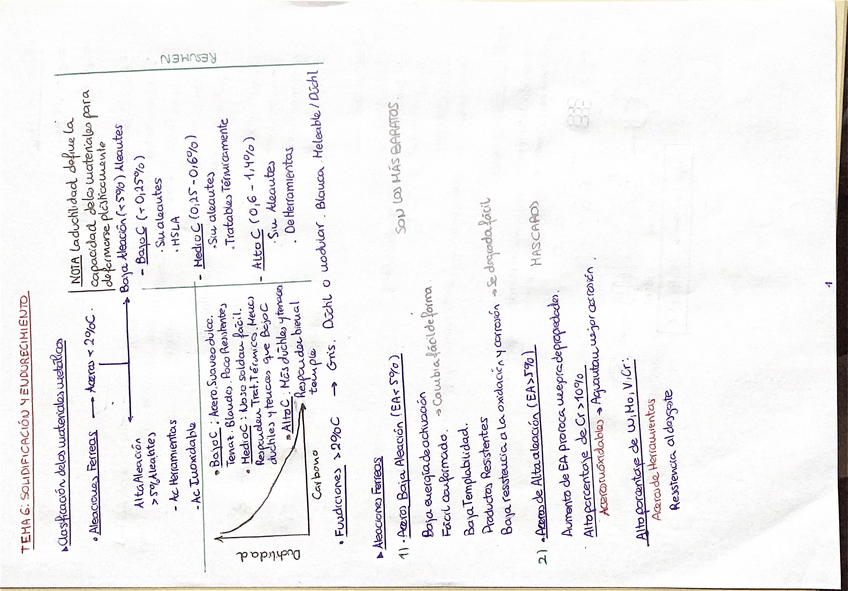 TEMA 6: SOLIDIFICACIÓN Y ENDURECIMIENTO
▸Clasificación de los materiales metálicos
• Aleaciones Ferreas → Aceros < 2%C.
Alta Aleación
> 5% Aleantes
- Ac Herramientas
- Ac Inoxidable
NOTA La ductilidad define la
capacidad de los materiales para
deformarse plásticamente
Baja Aleación (<5%) Aleantes
- Bajo C (<0,25%)
· Sin aleantes
· HSLA
- Medio C (0,25-0,6%)
· Sin aleantes
· Tratables Térmicamente
- Alto C (0,6 - 1,4%)
· Sin Aleantes
· De Herramientas
RESUMEN
Ductilidad
Carbono
• Bajo C: Acero Suave o dulce.
Tenaz. Blando. Poco Resistentes
• Medio C: No se soldan fácil.
Responden Trat. Térmicos, Menos
dúctiles y tenaces que Bajo C
• Alto C: Más dúctiles y tenaces
Responden bien al
temple
• Fundiciones > 2%C → Gris. Dúctil o nodular. Blanca. Maleable / Dúctil
▸ Aleaciones Ferreas
1) • Aceros Baja Aleación (EA<5%)
SON LOS MÁS BARATOS
Baja energía de activación
Fácil conformado. → Cambia fácil de forma
Baja Templabilidad.
Productos Resistentes
Baja resistencia a la oxidación y corrosión → Se degrada fácil
2) • Aceros de Alta aleación (EA>5%)
MAS CAROS
Aumento de EA provoca mejora de propiedades.
· Alto porcentaje de Cr > 10%
Aceros inoxidables → Aguantan mejor corrosión.
Alto porcentaje de W, Mo, V, Cr:
Aceros de Herramientas
Resistencia al desgaste
1